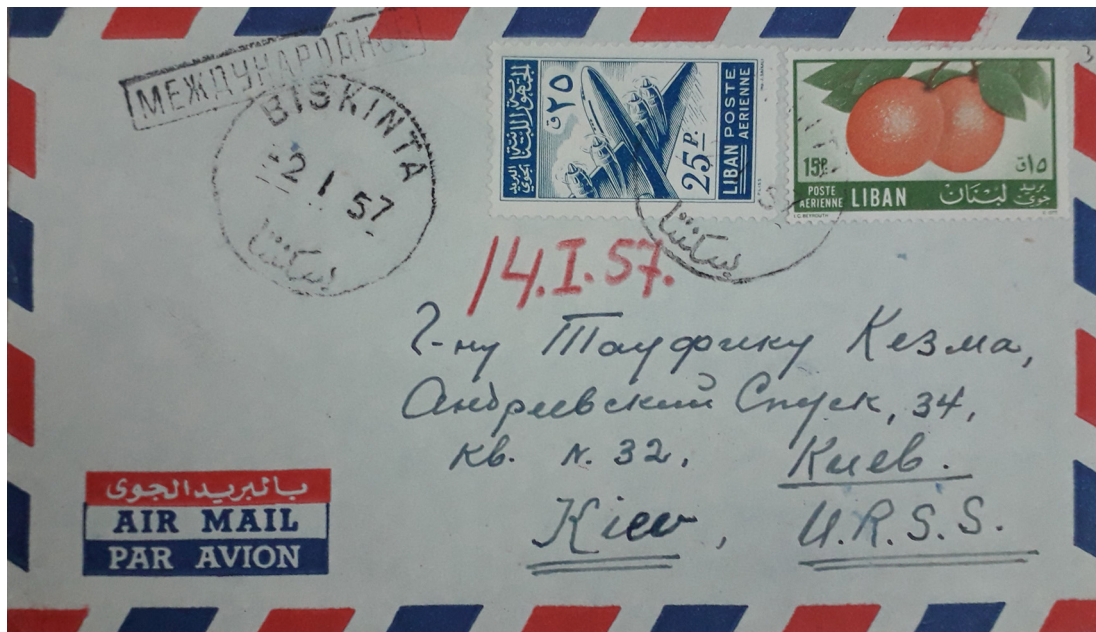 МЕЖДУНАРОДНОЕ
BISKINTA
-2 1 57
بسكنتا
الجمهورية اللبنانية
البريد الجوي
٢٥ ق
25 P.
LIBAN POSTE
AERIENNE
15 P.
١٥ ق
POSTE
AERIENNE
LIBAN
لبنان
بريد
جوي
بسكنتا
14.I.57.
Г-ну Тауфику Кезма,
Андреевский Спуск, 34,
кв. N. 32. Киев.
Kiev, U.R.S.S.
بالبريد الجوي
AIR MAIL
PAR AVION